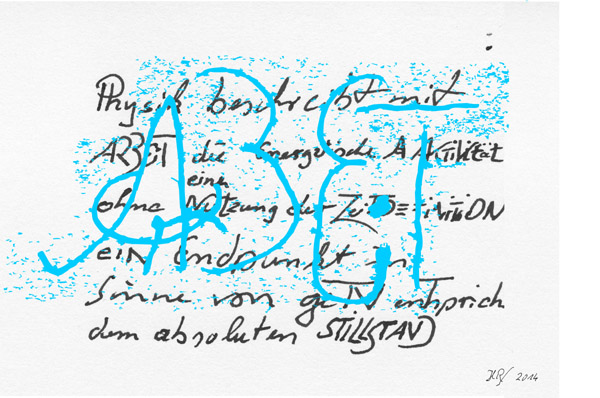 Physik beschreibt mit
ARBEIT die Energetische Aktivität
einer
ohne Nutzung der ZEITDEFINITION
ein Endpunkt im
Sinne von getan entsprich
dem absoluten STILLSTAND
2014